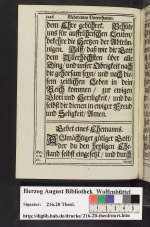 dem Ehr gebühret. Behüte
uns für auffrührischen Leuten/
bekehre die Hertzen der Widersin-
nigen. Hilff/ daß wir die Gott
dem Allerhöchsten über alle
Ding/ und unser Obrigkeit nach
dir gehorsam seyn/ und nach die-
sem zeitlichen Leben in dein
Reich kommen/ zur ewigen
und Herrligkeit/ und da-
selbst dir dienen in ewiger Freud
und Seligkeit/ Amen.
Gebet eines Ehemanns.
Allmächtiger gütiger Gott/
der du den heiligen Ehe-
stand selbst eingesetzt/ und durch
Herzog August Bibliothek Wolfenbüttel
Signatur: 216.28 Theol.
http://diglib.hab.de/drucke/216-28-theol/start.htm